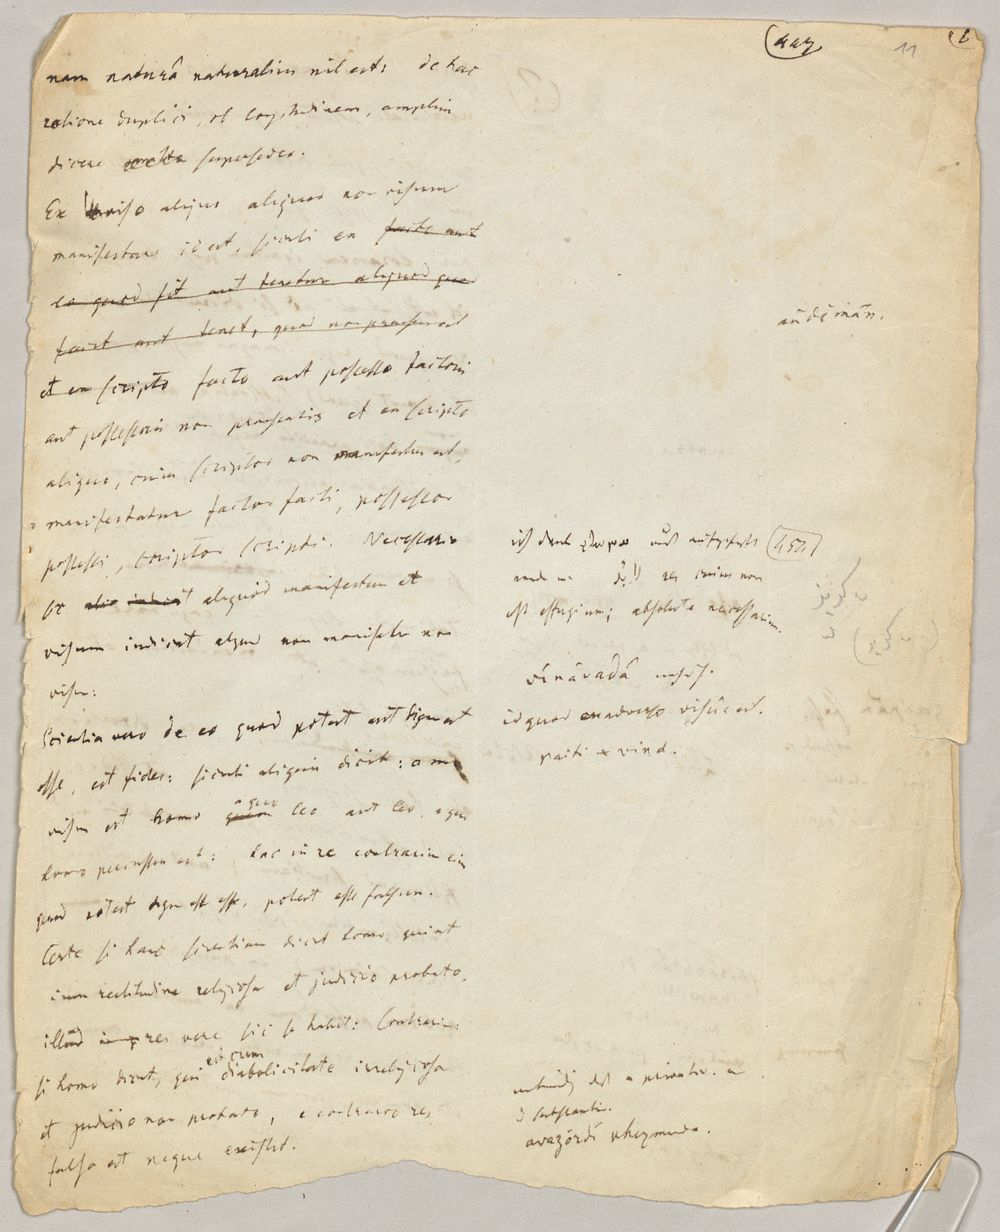 nam naturâ naturalium nil est: de hac
ratione duplici, ob longitudinem, amplius
dicere supersedeo.
Ex viso aliquo aliquod non visum
manifestare id est, sicuti ex facto aut
eo quod fit aut tenetur aliquod quod
facit aut tenet, quod non praesens est
et ex scripto facto aut possesso factoris
aut possessoris non praesentis et ex scripto
aliquo, cuius scriptor non manifestus est,
manifestatur factor facti, possessor
possessi, scriptor scripti. Necessario
ex aliquod manifestum et
visum indicat aliquod non manifestum non
visum:
Scientia vero de eo quod potest aut dignum est
esse, est fides: sicuti aliquis dicit: a me
visus est homo a quo leo aut leo, a quo
homo percussus est: hac in re contrarium eius
quod potest dignum esse esse, potest esse falsum.
Certe si hanc scientiam dicit homo, qui est
cum rectitudine religiosa et judicio probato,
illud res vere sic se habet: Contrarium:
si homo dicit, qui est cum diabolicitate irreligiosa
et judicio non probato, e contrario res
falsa est neque existit.
(447
11
andêmân.
ich denk und (454)
res cuius non
est effugium; absolute necessarium.
vênâvadâ
id quod ex adverso visûc est.
paiti + vind.
est a privativ. a
substantiv.
avazôrdî